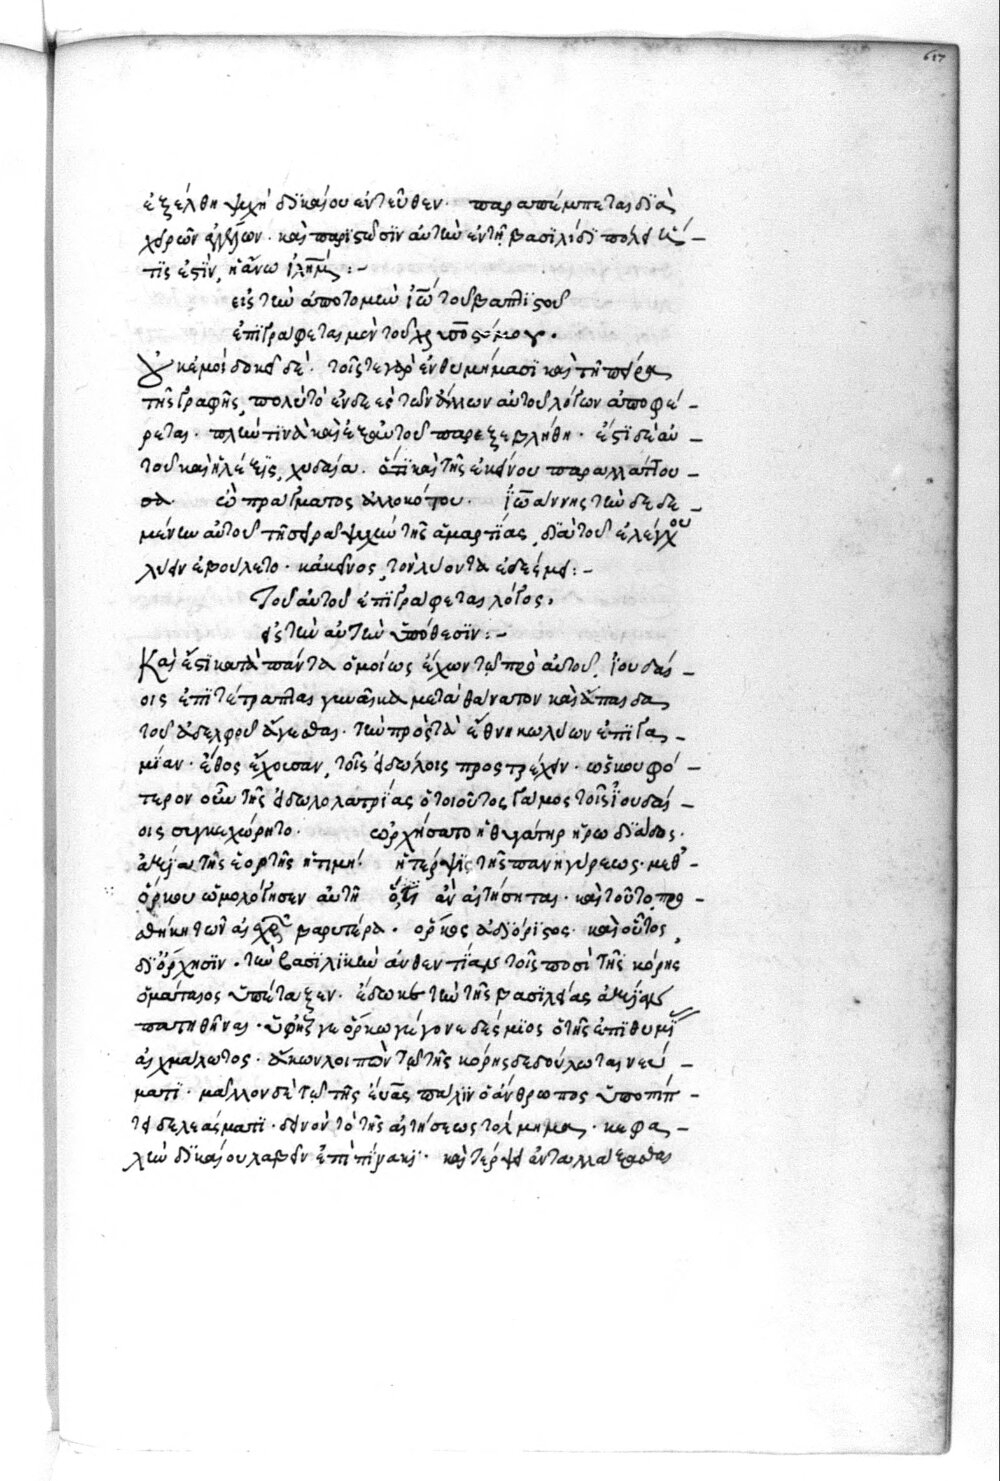 617
ἐξέλθη ψυχὴ δικαίου ἐντεῦθεν. παραπέμπεται διὰ
χειρῶν ἀγγέλων. καὶ παρίστωσιν αὐτὴν ἐν τῇ βασιλίδι πόλει
τίς ἐστὶν, ἡ ἄνω ἱλημ:-
εἰς τὴν ἀποτομὴν ἰω τοῦ βαπτιστοῦ
ἐπιγράφεται μὲν τοῦ
κἀμοὶ δοκεῖ δέ. τοῖς τε γὰρ ἐνθυμήμασι καὶ τῇ πείρα
τῆς γραφῆς, πολὺ τὸ ἐνδεὲς τῶν ἄλλων αὐτοῦ λόγων ἀποφέ-
ρεται. πλὴν τινὰ καὶ ἐξ αὐτοῦ παρεξεβλήθη. ἔστι δὲ αὐ-
τοῦ καὶ ἡ λέξις, χυδαία. ὅτι καὶ τῆς ἐκείνου παραλλάττου-
σα. ὢ πράγματος ἀλλοκότου. ἰωάννης τὴν δεδε-
μένην αὐτοῦ τῇ σειρᾷ ψυχὴν τῆς ἁμαρτίας, διὰ τοῦ ἐλέγχου
λύειν ἐβούλετο. κἀκεῖνος, τὸν λύοντα ἐδέσμει:-
Τοῦ αὐτοῦ ἐπιγράφεται λόγος,
εἰς τὴν αὐτὴν ὑπόθεσιν:-
Καὶ ἔστι κατὰ πάντα ὁμοίως ἔχων τῷ πρὸ αὐτοῦ, ἰουδαί-
οις ἐπιτέτραπται γυναῖκα μετὰ θάνατον καὶ ἄπαιδα
τοῦ ἀδελφοῦ ἄγεσθαι. τὴν πρὸς τὰ ἔθνη κωλύων ἐπιγα-
μίαν. ἔθος ἔχουσαν, τοῖς εἰδώλοις προστρέχειν. ὡς κουφό-
τερον οὖν τῆς εἰδωλολατρίας ὁ τοιοῦτος γάμος τοῖς ἰουδαί-
οις συγκεχώρητο. ὠρχήσατο ἡ θυγάτηρ ἡρωδιάδος.
ἀξία τῆς ἑορτῆς ἡ τιμή. ἡ τέρψις τῆς πανηγύρεως. μεθ'
ὅρκου ὡμολόγησεν αὐτῇ ὅ,τι ἂν αἰτήσηται. καὶ τοῦτο, προ
σθήκη τῶν βαρυτέρα. ὅρκος ἀδιόριστος. καὶ οὗτος,
δι' ὄρχησιν. τὴν βασιλικὴν αὐθεντίαν τοῖς ποσὶ τῆς κόρης
ὁ μάταιος ὑπέταξεν. ἔδωκε τὴν τῆς βασιλείας ἀξίαν
πατηθῆναι. ὑφ' ἧς γε ὅρκω γέγονε δέσμιος ὁ τῆς ἐπιθυμίας
αἰχμάλωτος. ἄκων λοιπὸν τῷ τῆς κόρης δεδούλωται νεύ-
ματι. μᾶλλον δὲ τῷ τῆς εὔας πάλιν ὁ ἄνθρωπος ὑποπίπ-
τει δελεάσματι. δεινὸν τὸ τῆς αἰτήσεως τόλμημα. κεφα-
λὴν δικαίου λαβεῖν ἐπὶ πίνακι. καὶ τέρψει ἀνταλλάξασθαι